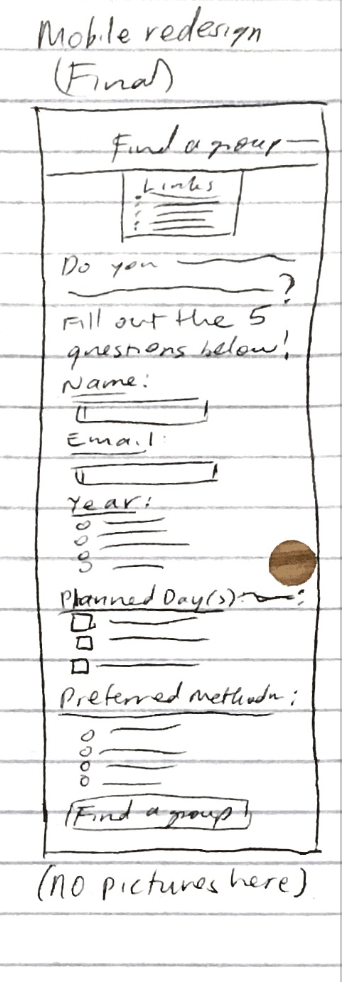 Mobile redesign
(Final)
Find a group
Links
Do you
?
Fill out the 5
questions below!
Name:
Email:
Year:
Planned Day(s):
Preferred Method:
Find a group
(no pictures here)